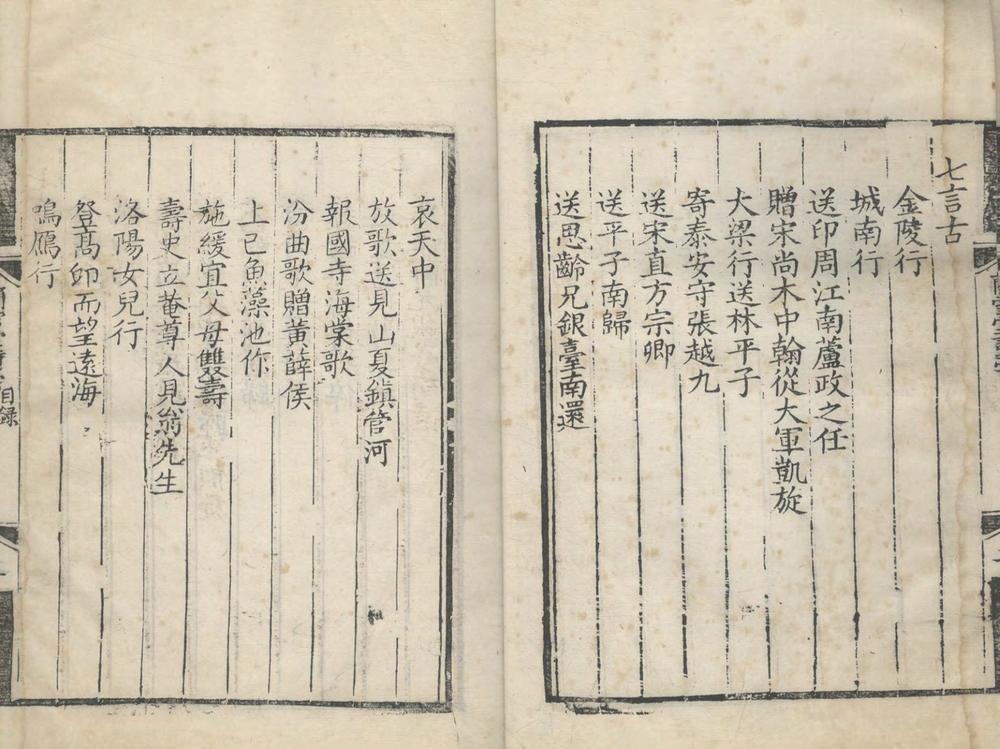 七言古
金陵行
城南行
送印周江南蘆政之任
贈宋尚木中翰從大軍凱旋
大梁行送林平子
寄泰安守張越九
送宋直方宗卿
送平子南歸
送思齡兄銀臺南還
哀天中
放歌送見山夏鎮管河
報國寺海棠歌
汾曲歌贈黃薛侯
上巳魚藻池作
施緩宜父母雙壽
壽史立菴尊人見翁先生
洛陽女兒行
登高卬而望遠海
鳴鴈行
目錄